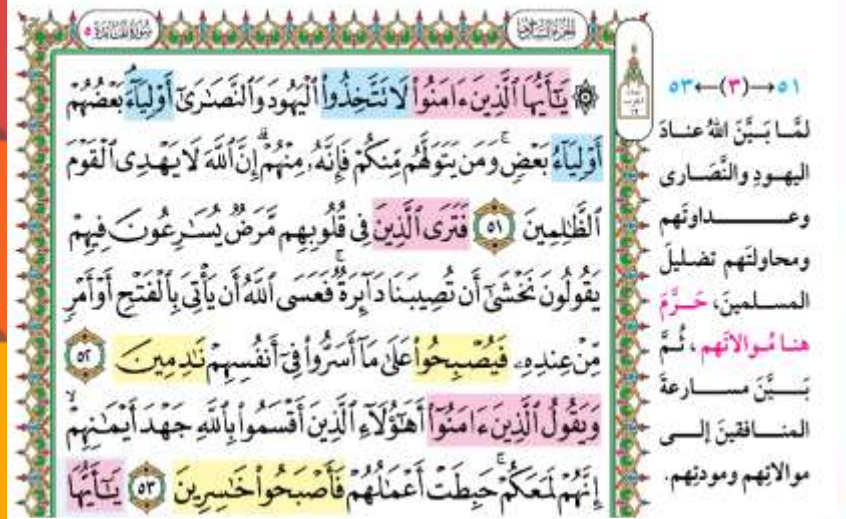 الجزء السادس
سورة المائدة ٥
۞ يَـٰٓأَيُّهَا ٱلَّذِينَ ءَامَنُوا۟ لَا تَتَّخِذُوا۟ ٱلْيَهُودَ وَٱلنَّصَـٰرَىٰٓ أَوْلِيَآءَ ۘ بَعْضُهُمْ
أَوْلِيَآءُ بَعْضٍ ۚ وَمَن يَتَوَلَّهُم مِّنكُمْ فَإِنَّهُۥ مِنْهُمْ ۗ إِنَّ ٱللَّهَ لَا يَهْدِى ٱلْقَوْمَ
ٱلظَّـٰلِمِينَ ٥١ فَتَرَى ٱلَّذِينَ فِى قُلُوبِهِم مَّرَضٌ يُسَـٰرِعُونَ فِيهِمْ
يَقُولُونَ نَخْشَىٰٓ أَن تُصِيبَنَا دَآئِرَةٌ ۚ فَعَسَى ٱللَّهُ أَن يَأْتِىَ بِٱلْفَتْحِ أَوْ أَمْرٍ
مِّنْ عِندِهِۦ فَيُصْبِحُوا۟ عَلَىٰ مَآ أَسَرُّوا۟ فِىٓ أَنفُسِهِمْ نَـٰدِمِينَ ٥٢
وَيَقُولُ ٱلَّذِينَ ءَامَنُوٓا۟ أَهَـٰٓؤُلَآءِ ٱلَّذِينَ أَقْسَمُوا۟ بِٱللَّهِ جَهْدَ أَيْمَـٰنِهِمْ ۙ
إِنَّهُمْ لَمَعَكُمْ ۚ حَبِطَتْ أَعْمَـٰلُهُمْ فَأَصْبَحُوا۟ خَـٰسِرِينَ ٥٣ يَـٰٓأَيُّهَا
٥١→(٣)←٥٣
لمَّا بَيَّنَ اللهُ عنادَ
اليهودِ والنَّصَارى
وعداوتَهم
ومحاولتَهم تضليلَ
المسلمينَ، حَرَّمَ
هنا مُوالاتَهم، ثُمَّ
بَيَّنَ مسارعةَ
المنافقينَ إلى
موالاتِهم ومودتِهم.